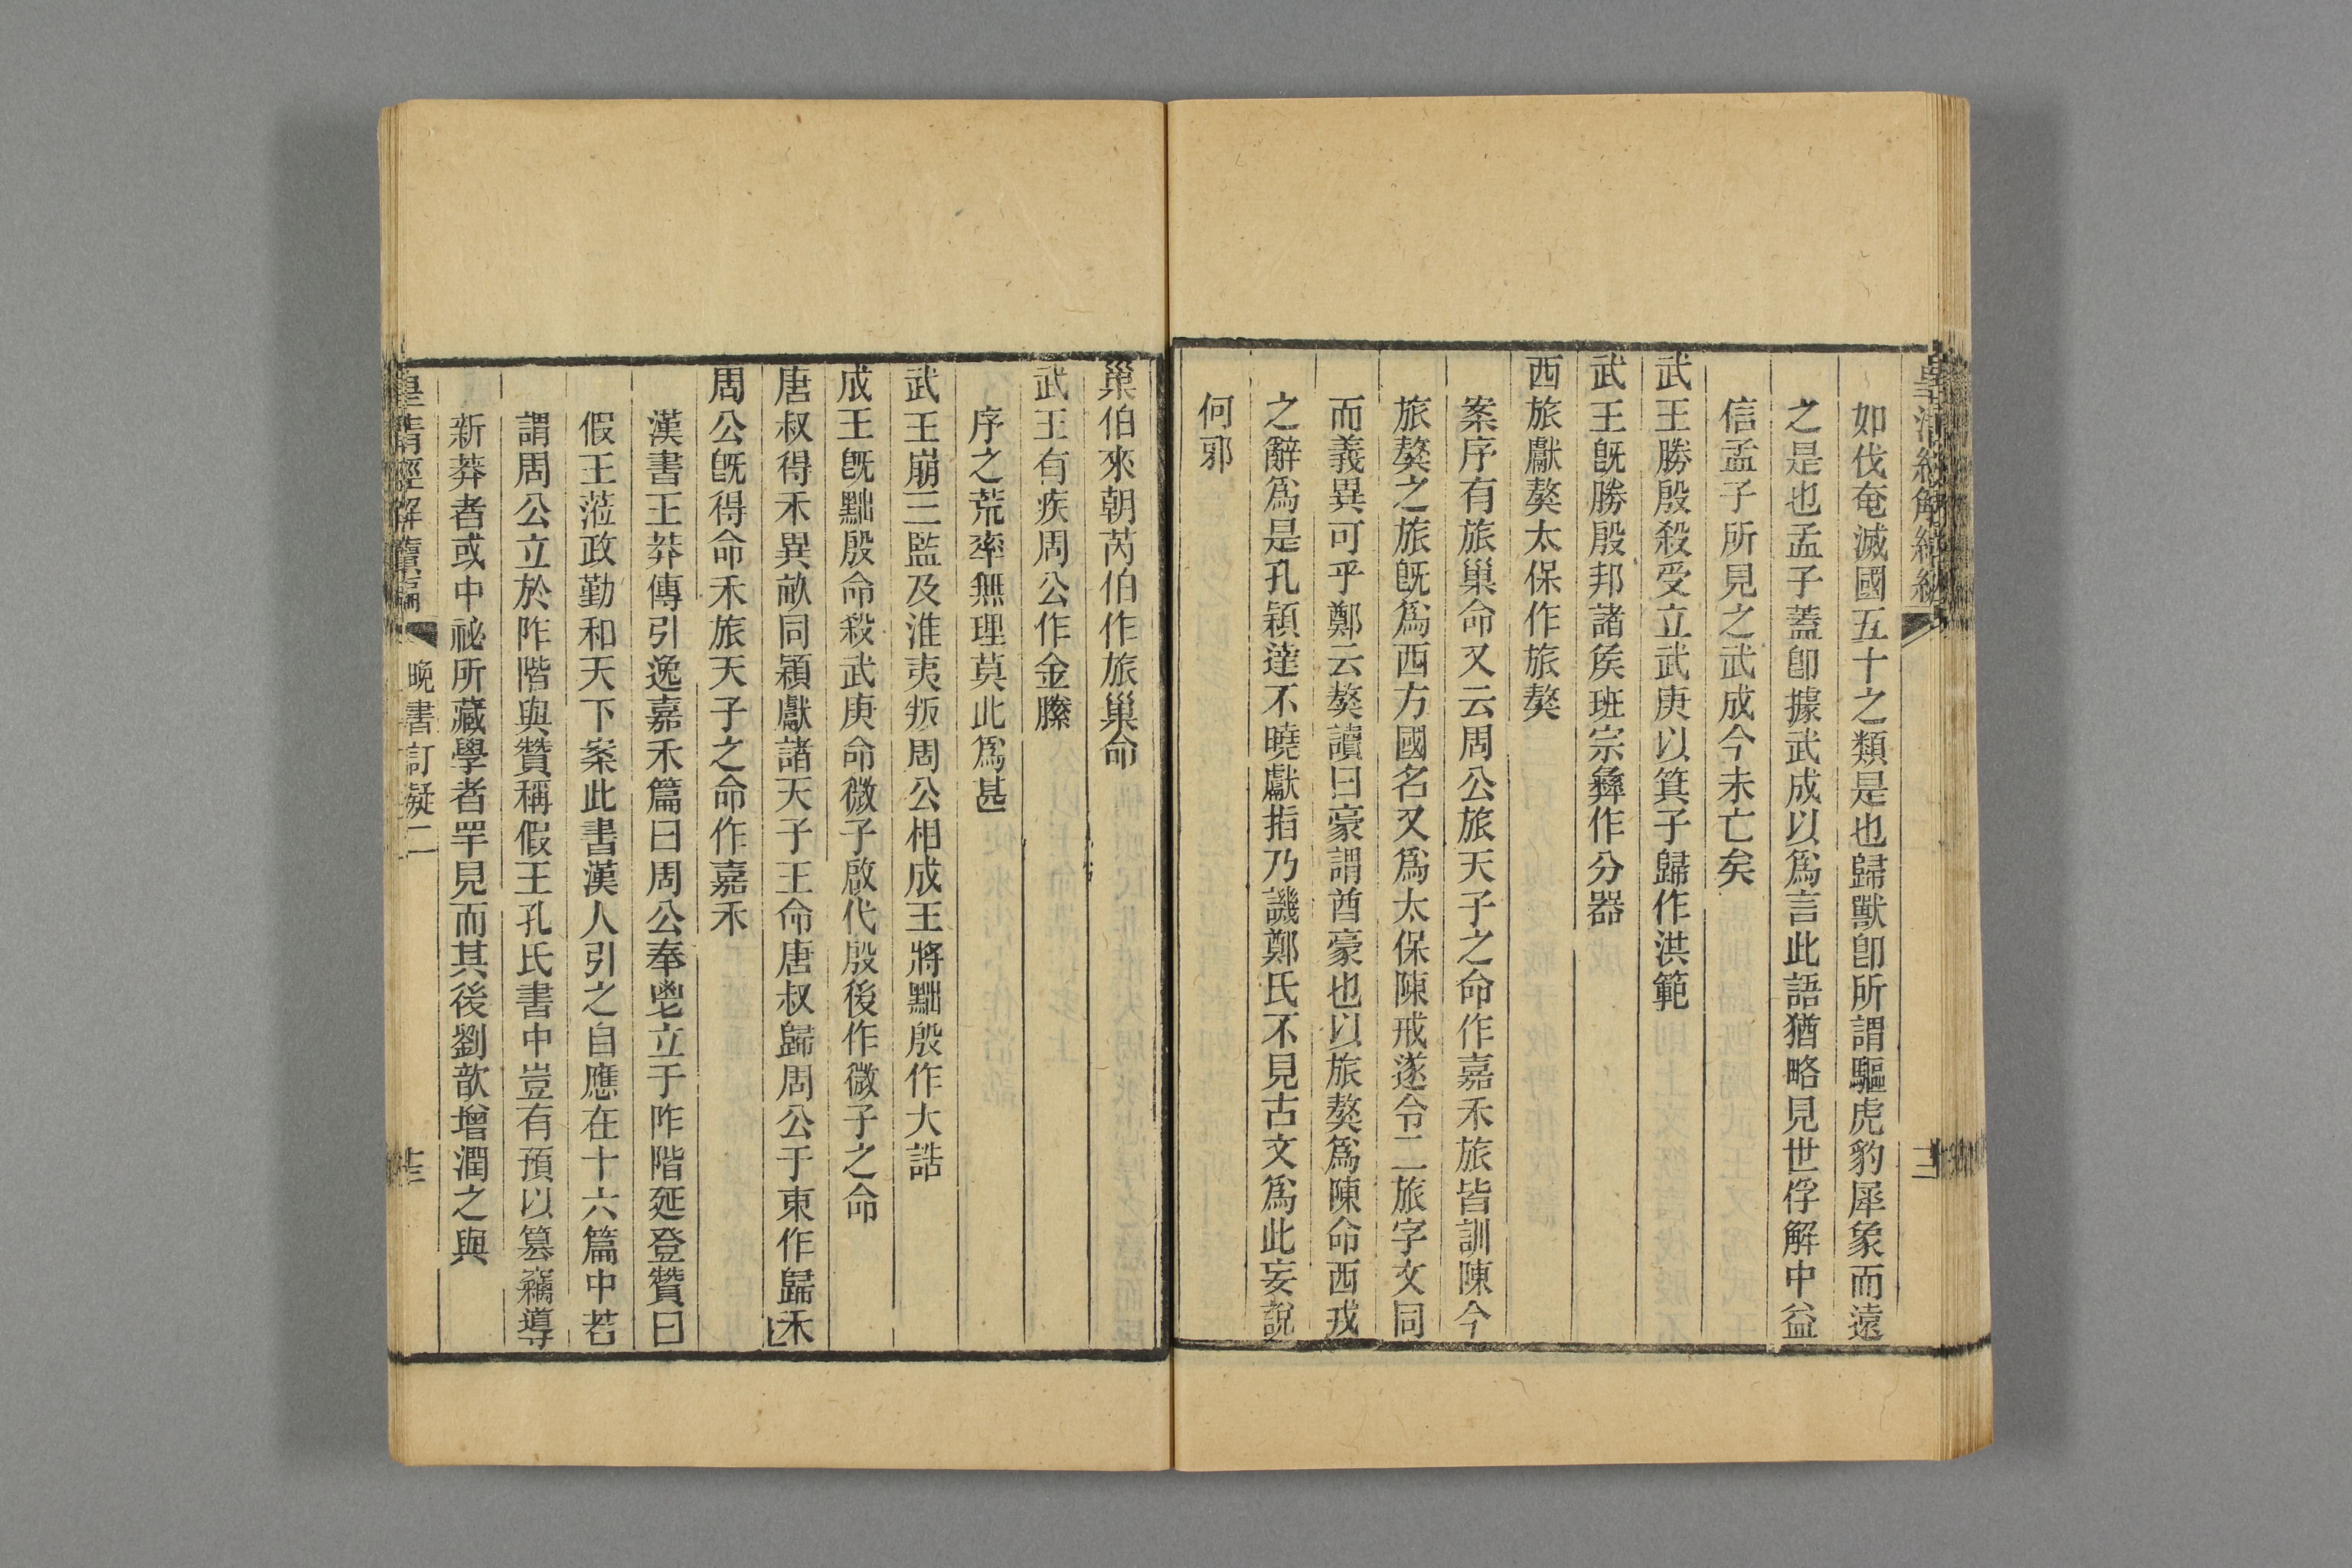 如伐奄滅國五十之類是也歸獸卽所謂驅虎豹犀象而遠
之是也孟子蓋卽據武成以爲言此語猶略見世俘解中益
信孟子所見之武成今未亡矣
武王勝殷殺受立武庚以箕子歸作洪範
武王旣勝殷邦諸矦班宗彝作分器
西旅獻獒太保作旅獒
案序有旅巢命又云周公旅天子之命作嘉禾旅皆訓陳今
旅獒之旅旣爲西方國名又爲太保陳戒遂令二旅字文同
而義異可乎鄭云獒讀曰豪謂酋豪也以旅獒爲陳命西戎
之辭爲是孔穎達不曉獻指乃譏鄭氏不見古文爲此妄說
何邪
巢伯來朝芮伯作旅巢命
武王有疾周公作金縢
序之荒率無理莫此爲甚
武王崩三監及淮夷叛周公相成王將黜殷作大誥
成王旣黜殷命殺武庚命微子啟代殷後作微子之命
唐叔得禾異畝同穎獻諸天子王命唐叔歸周公于東作歸禾
周公旣得命禾旅天子之命作嘉禾
漢書王莽傳引逸嘉禾篇曰周公奉鬯立于阼階延登贊曰
假王蒞政勤和天下案此書漢人引之自應在十六篇中若
謂周公立於阼階與贊稱假王孔氏書中豈有預以篡竊導
新莽者或中祕所藏學者罕見而其後劉歆增潤之與
皇淸經解續編
晚書訂疑二